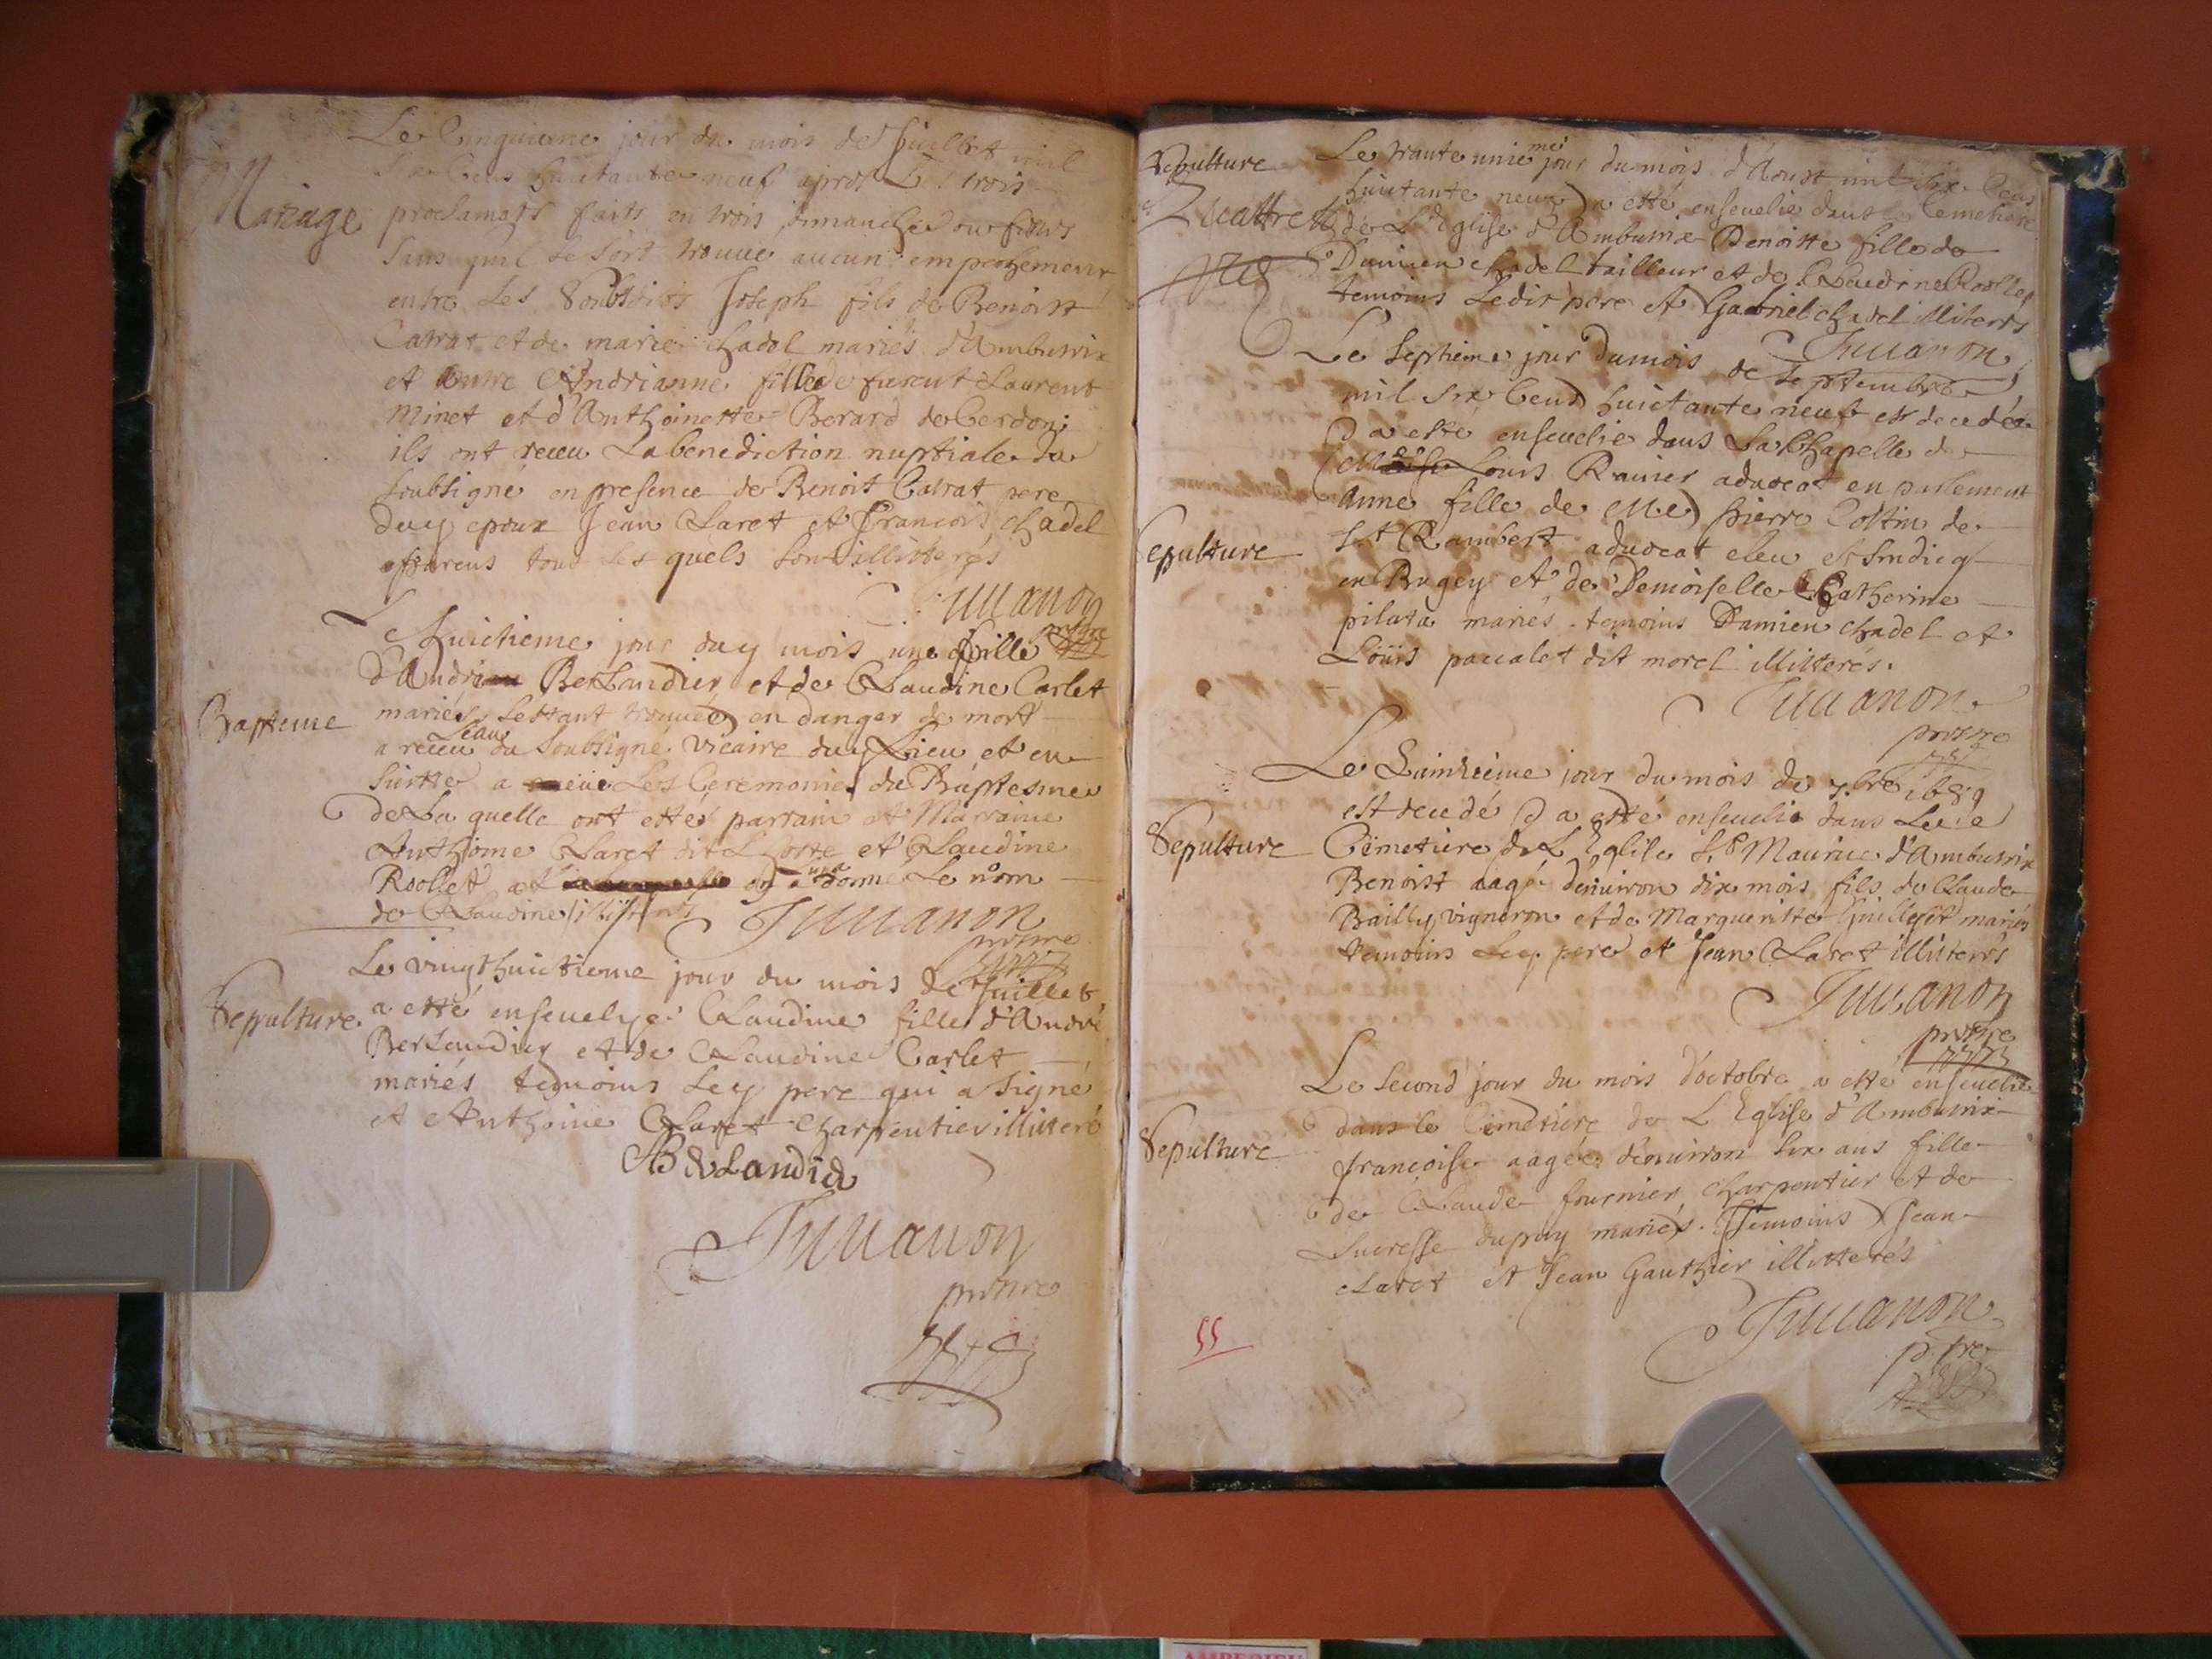 Le Cinquieme jour du mois de Juillet mil
Six Cens huictante neuf apres Les trois
Mariage
proclamats faits en trois dimanches ou festes
sans quil se soit trouue aucun empechement
entre Les Soubsdits Joseph fils de Benoist
Catrat et de marie chadel mariés d'Ambutrix
et entre Andrianne fille de Laurent
Minet et d'Anthoinette Berard de Cerdon;
ils ont receu La benediction nuptiale du
soubsigné en presence de Benoit Catrat pere
duy epoux Jean Claret et François chadel
tous les quels sont illitterés
Juuanon
prestre
Le huictieme jour duy mois une fille
d'Andre Berlandier et de Claudine Carlet
Bapteme
mariés sestant trouuée en danger de mort
a receu Leau du soubsigné vicaire duy Lieu et en
suitte a Les Ceremonies du Baptesme
de La quelle ont estés parrain et Marraine
Anthoine Claret dit L'hoste et Claudine
Roollet et on a donné Le nom
de Claudine illitterés
Juuanon
prestre
Le vingthuictieme jour du mois de Juillet
Sepulture
a esté enseuelye Claudine fille d'André
Berlandier et de Claudine Carlet
mariés temoins Ley pere qui a signé
et Anthoine Claret Charpentier illitteré
Berlandier
Juuanon
prestre
Sepulture
Le trante unieme jour du mois d'Aoust mil six Cens
huictante neuf a esté enseuelie dans le Cemetiere
de L'Eglise d'Ambutrix Benoitte fille de
Damien chadel tailleur et de Claudine Roollet
temoins Ledit pere et Gabriel chadel illiterés
Juuanon
Le Septieme jour du mois de Septembre
mil six Cens huictante neuf est decedée
a esté enseuelie dans La Chapelle de
Louis Rainer aduocat en parlement
Anne fille de Me pierre Costin de
Sepulture
St Rambert aduocat eleu et sindicq
en Bugey et de Demoiselle Catherine
pilata mariés temoins Damien chadel et
Loüis paucalet dit morel illitterés.
Juuanon
prestre
Le quinzieme jour du mois de 7.bre 1689
est decedé a esté enseueli dans Le
Sepulture
Cemetiere de L'Eglise St Maurice d'Ambutrix
Benoist aagé denuiron dix mois fils de Claude
Bailly vigneron et de Margueritte Guilleset mariés
temoins Ley pere et Jean Claret illiterés
Juuanon
prestre
Le second jour du mois d'octobre a esté enseuelie
dans le Cimetiere de L'Eglise d'Ambutrix
Sepulture
françoise aagée denuiron six ans fille
de Claude fournier charpentier et de
Lucresse dupuy mariés. Temoins Jean
claret et Jean Gauthier illitterés
Juuanon
ptre
55